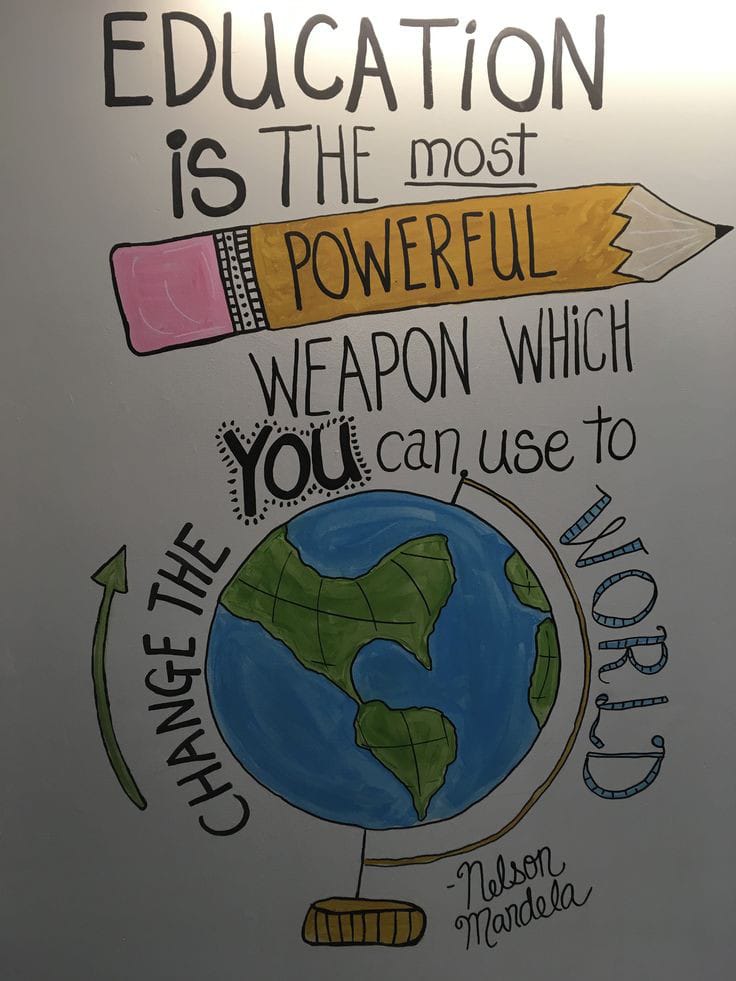 EDUCATiON
iS THE most
POWERFUL
WEAPON WHiCH
YOU can use to
CHANGE THE
WORLD
-Nelson
Mandela